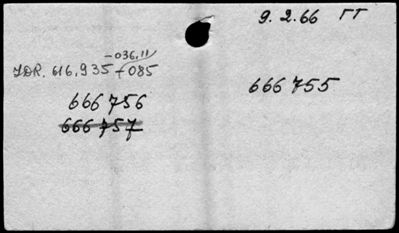 9. 2. 66 ГТ
-036.11/
ZDR. 616.935-085
666 755
666 756
666 757